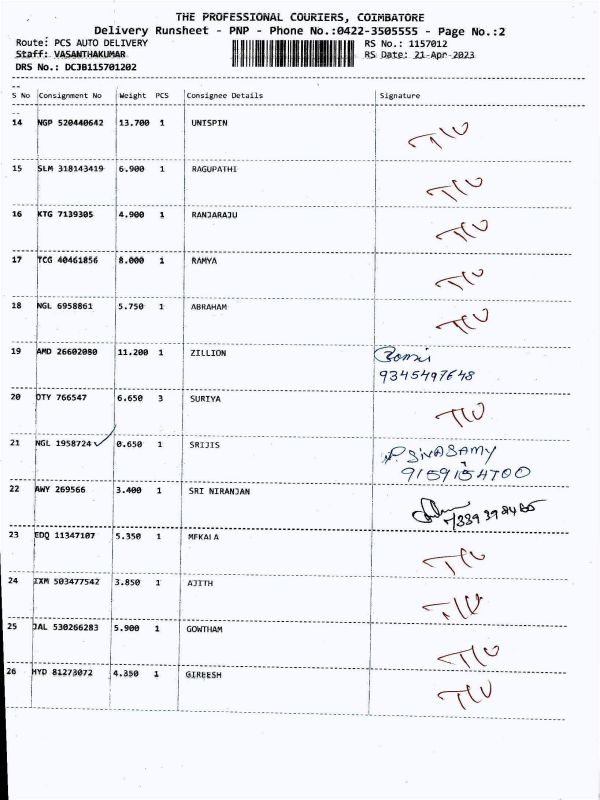 THE PROFESSIONAL COURIERS, COIMBATORE
Delivery Runsheet - PNP - Phone No.:0422-3505555 - Page No.:2
Route: PCS AUTO DELIVERY RS No.: 1157012
Staff: VASANTHAKUMAR RS Date: 21-Apr-2023
DRS No.: DCJB115701202
S No Consignment No Weight PCS Consignee Details Signature
14 NGP 520440642 13.700 1 UNISPIN
15 SLM 318143419 6.900 1 RAGUPATHI
16 KTG 7139305 4.900 1 RANJARAJU
17 TCG 40461856 8.000 1 RAMYA
18 NGL 6958861 5.750 1 ABRAHAM
19 AMD 26602080 11.200 1 ZILLION
9345497648
20 OTY 766547 6.650 3 SURIYA
21 NGL 1958724 0.650 1 SRIJIS P. SIVASAMY
9159154700
22 AWY 269566 3.400 1 SRI NIRANJAN
23 EDQ 11347107 5.350 1 MEKALA
24 IXM 503477542 3.850 1 AJITH
25 JAL 530266283 5.900 1 GOWTHAM
26 HYD 81273072 4.350 1 GIREESH